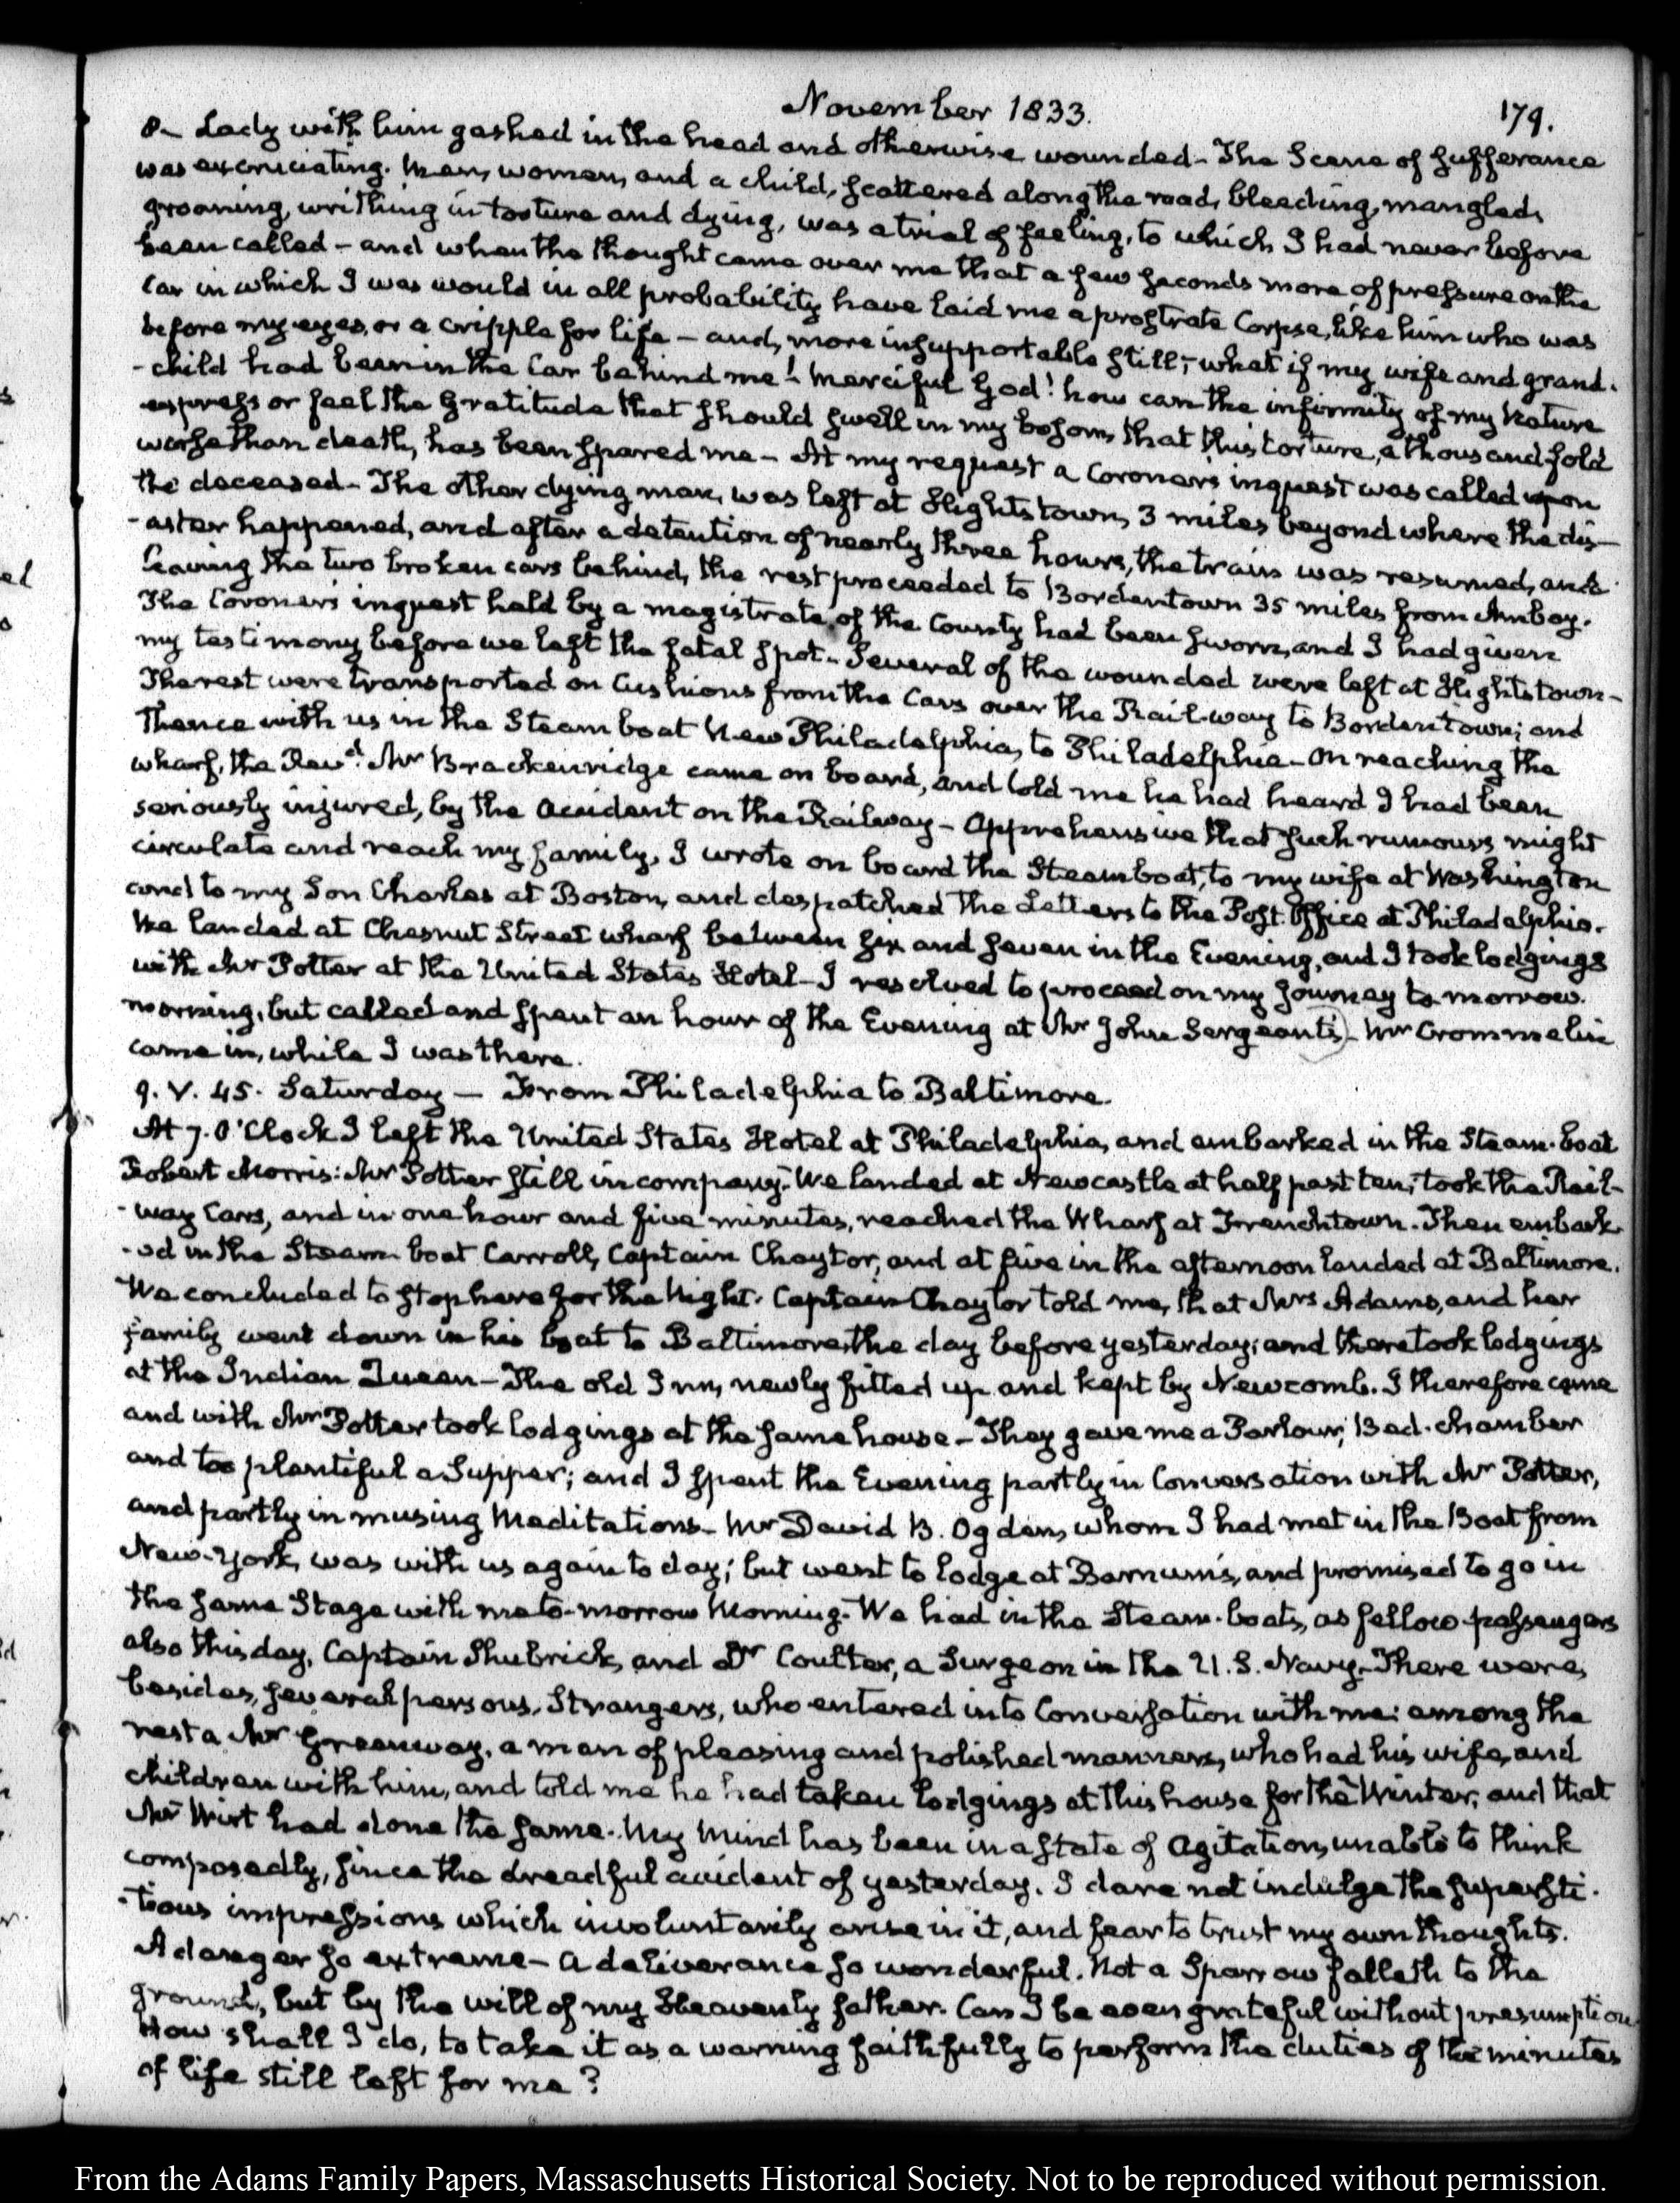 November 1833.
179.
8— Lady with him gashed in the head and otherwise wounded— The Scene of sufferance
was excruciating. Men, women, and a child, scattered along the road, bleeding, mangled,
groaning, writhing in torture and dying, was a trial of feeling, to which I had never before
been called— and when the thought came over me that a few seconds more of pressure on the
Car in which I was would in all probability have laid me a prostrate Corpse, like him who was
before my eyes, or a cripple for life— and, more insupportable still, what if my wife and grand-
-child had been in the Car behind me! Merciful God! how can the infirmity of my Nature
express or feel the Gratitude that should swell in my bosom, that this torture, a thousand fold
worse than death, has been spared me— At my request a Coroner's inquest was called upon
the deceased— The other dying man, was left at Hightstown, 3 miles beyond where the dis-
-aster happened, and after a detention of nearly three hours, the train was resumed, and
leaving the two broken cars behind, the rest proceeded to Bordentown 35 miles from Amboy.
The Coroner's inquest held by a magistrate of the County had been sworn, and I had given
my testimony before we left the fatal spot— Several of the wounded were left at Hightstown—
The rest were transported on Cushions from the Cars over the Rail-way to Bordentown; and
thence with us in the Steam boat New Philadelphia, to Philadelphia— On reaching the
wharf, the Revd. Mr Brackenridge came on board, and told me he had heard I had been
seriously injured, by the accident on the Railway— Apprehensive that such rumours might
circulate and reach my family, I wrote on board the Steamboat, to my wife at Washington
and to my Son Charles at Boston, and despatched the Letters to the Post-Office at Philadelphia.
We landed at Chesnut Street wharf between six and seven in the Evening, and I took lodgings
with Mr Potter at the United States Hotel— I resolved to proceed on my Journey to-morrow
morning, but called and spent an hour of the Evening at Mr John Sergeant's— Mr Crommelin
came in, while I was there.
9. V. 45. Saturday — From Philadelphia to Baltimore.
At 7. O'Clock I left the United States Hotel at Philadelphia, and embarked in the Steam-boat
Robert Morris: Mr Potter still in company. We landed at Newcastle at half past ten; took the Rail-
-way Cars, and in one hour and five minutes, reached the Wharf at Frenchtown. Then embark-
-ed in the Steam boat Carroll, Captain Chaytor, and at five in the afternoon landed at Baltimore.
We concluded to stop here for the Night. Captain Chaytor told me, that Mrs Adams, and her
family went down in his boat to Baltimore, the day before yesterday; and there took lodgings
at the Indian Queen— The old Inn, newly fitted up and kept by Newcomb. I therefore came
and with Mr Potter took lodgings at the same house— They gave me a Parlour, Bed-chamber
and too plentiful a Supper; and I spent the Evening partly in Conversation with Mr Potter,
and partly in musing Meditations— Mr David B. Ogden, whom I had met in the Boat from
New-York, was with us again to day; but went to lodge at Barnum's, and promised to go in
the same Stage with me to-morrow Morning. We had in the Steam-boats, as fellow-passengers
also this day, Captain Shubrick, and Dr Coulter, a Surgeon in the U.S. Navy. There were,
besides, several persons, Strangers, who entered into Conversation with me: among the
rest a Mr Greenway, a man of pleasing and polished manners, who had his wife, and
children with him, and told me he had taken lodgings at this house for the Winter, and that
Mr Wirt had done the same. My Mind has been in a state of Agitation, unable to think
composedly, since the dreadful accident of yesterday. I dare not indulge the supersti-
-tious impressions which involuntarily arise in it, and fear to trust my own thoughts.
A danger so extreme— A deliverance so wonderful. Not a Sparrow falleth to the
ground, but by the will of my Heavenly father. Can I be even grateful without presumption
How shall I do, to take it as a warning faithfully to perform the duties of the minutes
of life still left for me?
From the Adams Family Papers, Massachusetts Historical Society. Not to be reproduced without permission.